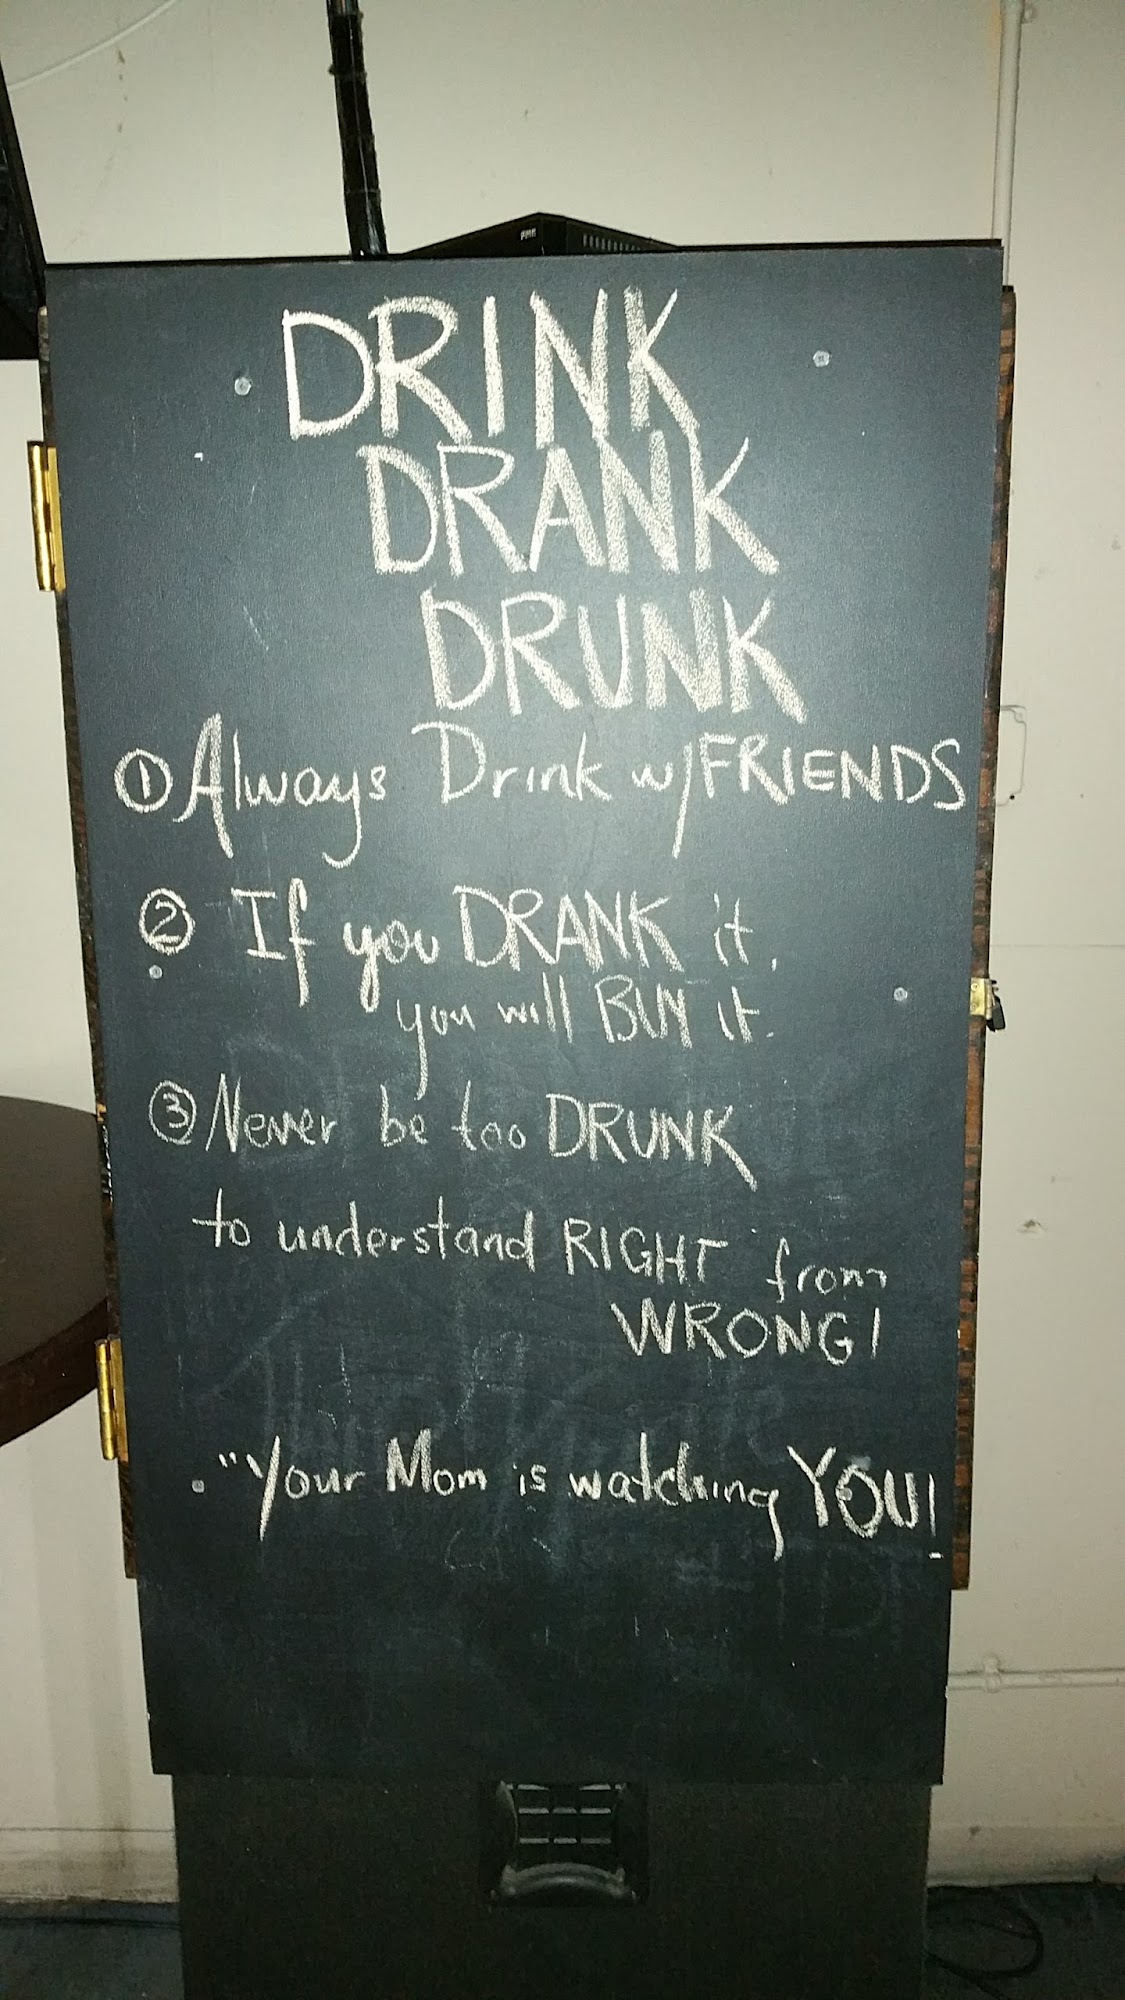 DRINK
DRANK
DRUNK
① Always Drink w/FRIENDS
② If you DRANK it,
you will BUY it.
③ Never be too DRUNK
to understand RIGHT from
WRONG!
"Your Mom is watching YOU!